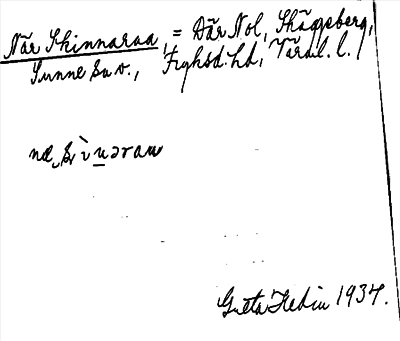 När Skinnaraa, = Där Nol, Skäggeberg,
Sunne sn v., Fryksd. hd, Värml. l.
Greta Hedin 1934.